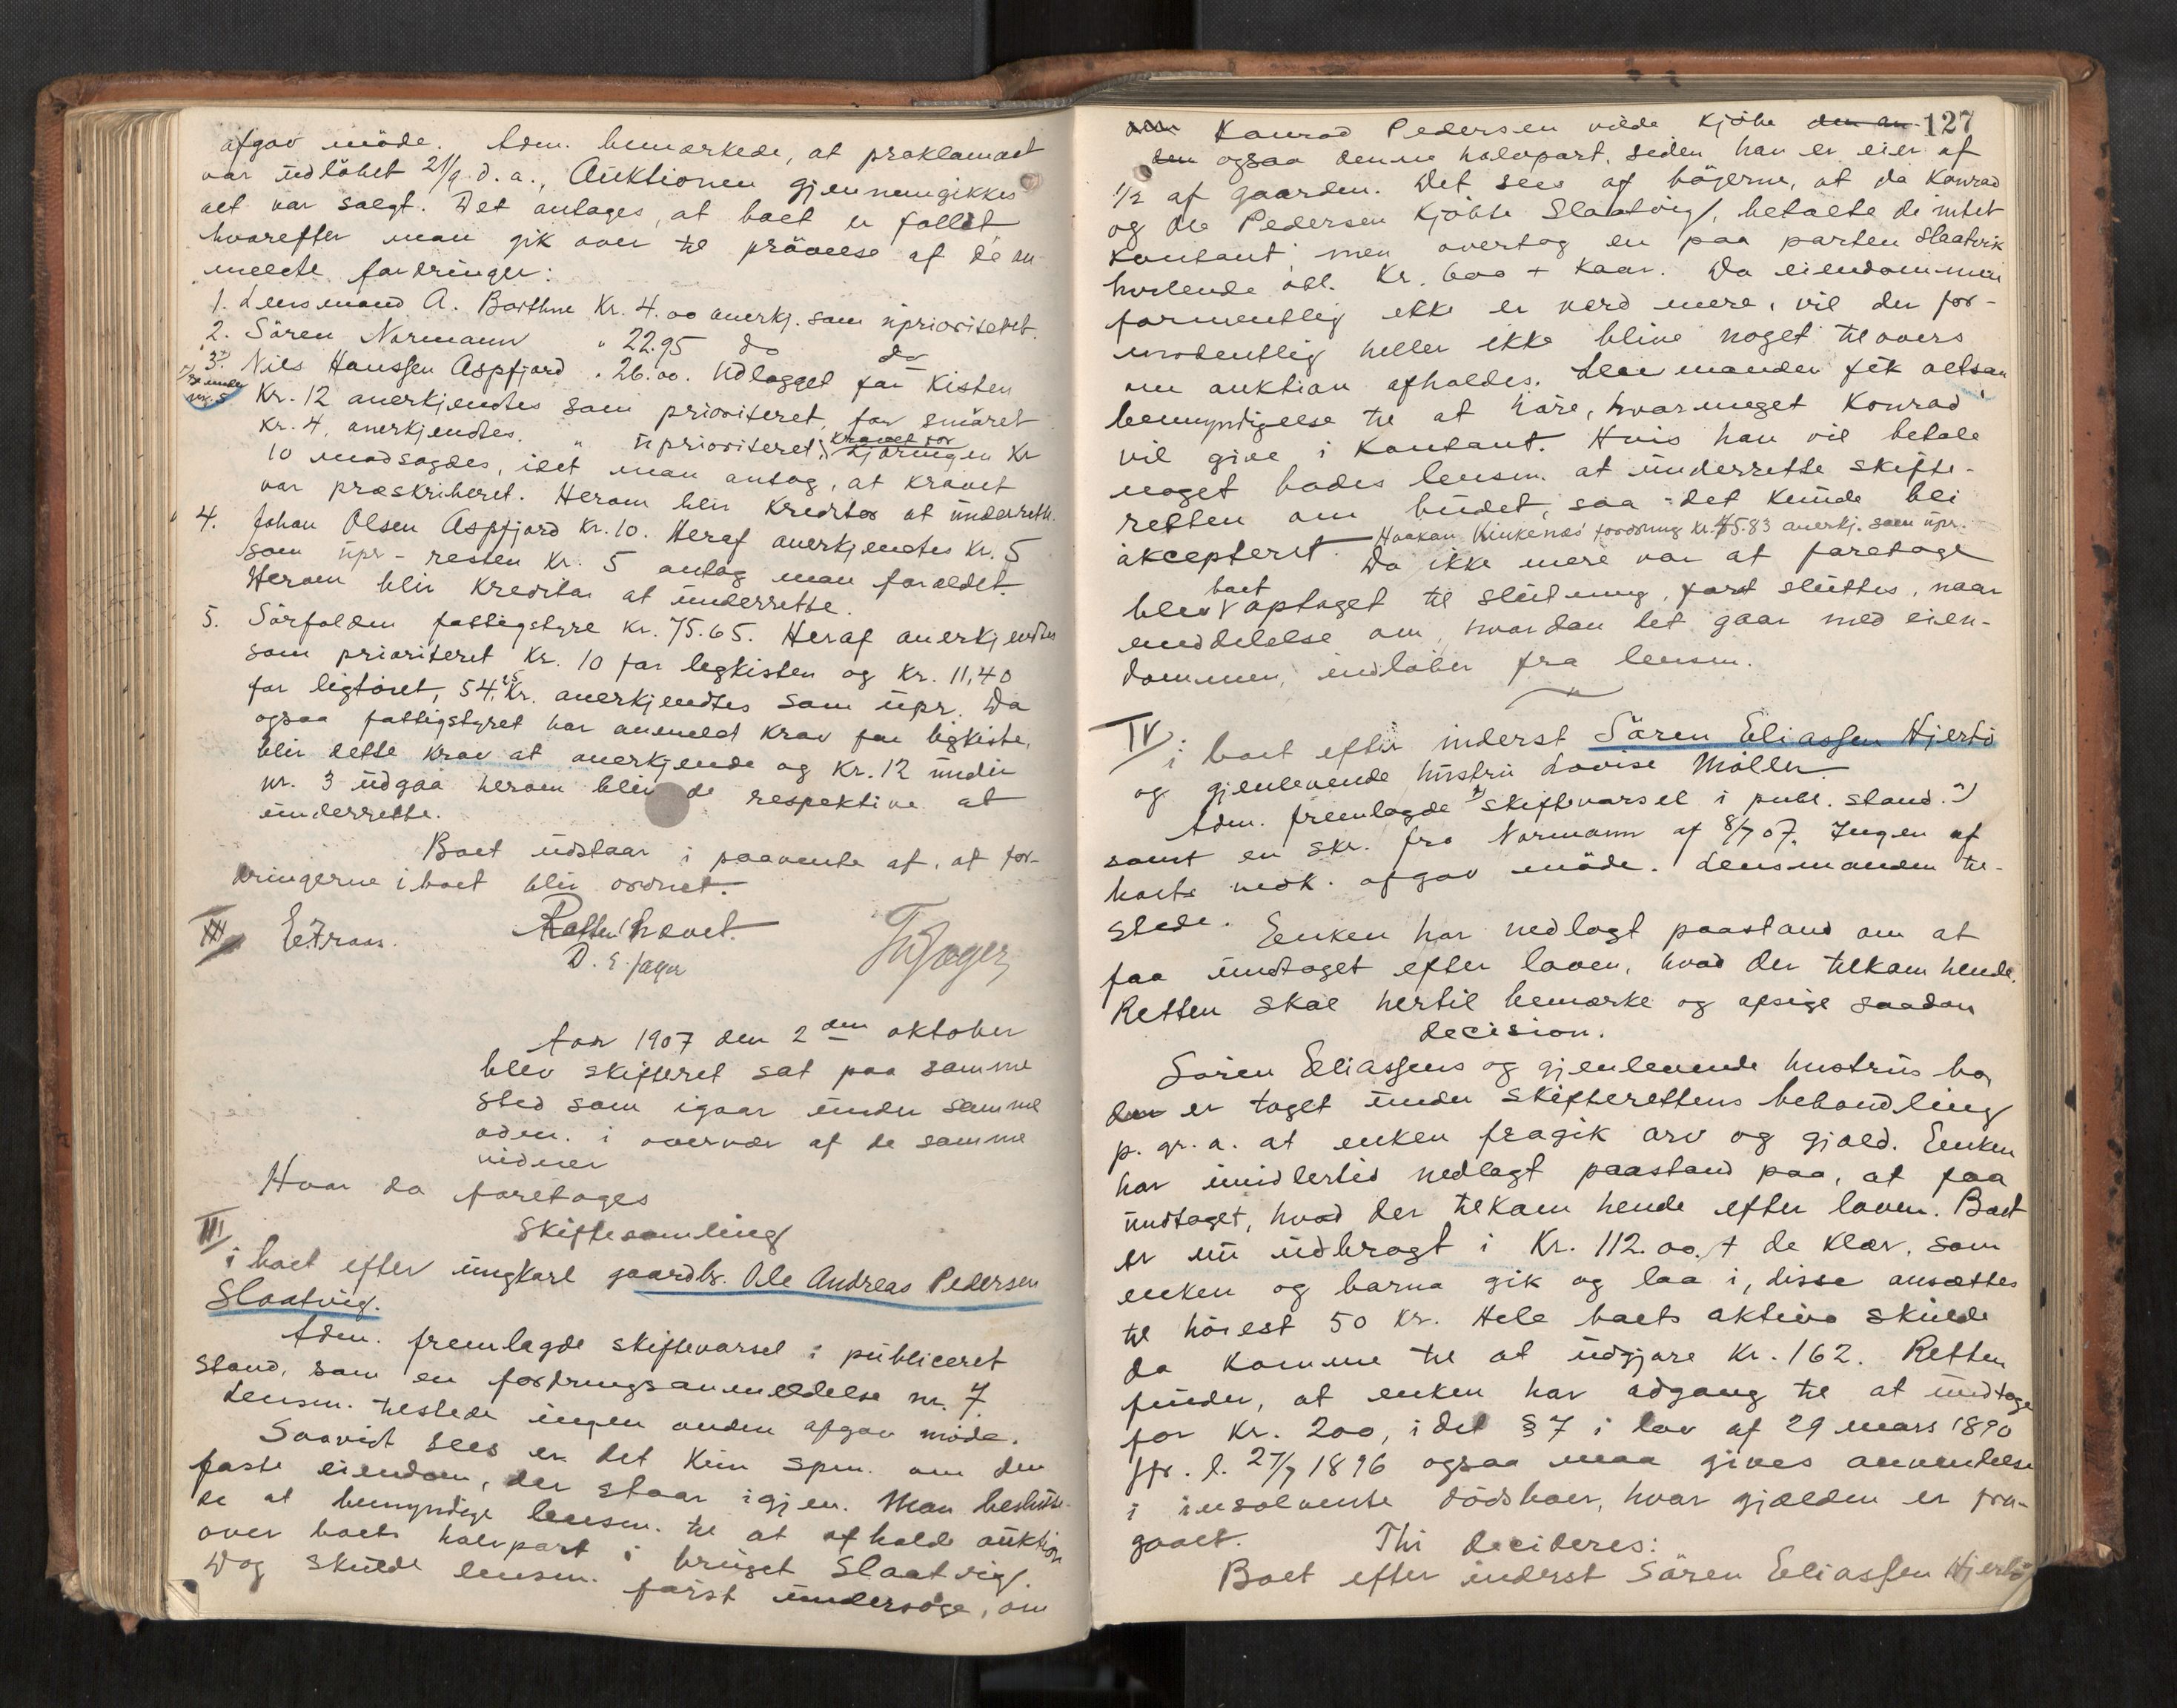 afgav möde. Adm. bemærkede, at proklamaet
var üdlöbet 21/9 d. a., Aüktionen gjennemgikkes
alt var solgt. Det antages, at boet er fallit,
hvorefter man gik over til prövelse af de an-
meldte fordringer:
1. Lensmand A. Barthne Kr. 4.00 anerkj. som üprioriteret.
2. Sören Normann " 22.95 do do
3. Nils Hanssen Aspfjord " 26.00. Üdlægget for kisten
nr. 5
Kr. 12 anerkjendtes som prioriteret, for smöret
Kr. 4, anerkjendtes " üprioriteret; Kravet for
kjöringen Kr
10 modsagdes, idet man antog, at kravet
var præskriberet. Herom blir kreditor at ünderrette.
4. Johan Olsen Aspfjord Kr. 10. Heraf anerkjendtes Kr. 5
som üpr - resten Kr. 5 antog man forældet.
Herom blir kreditor at ünderrette.
5. Sörfolden fattigstyre Kr. 75.65. Heraf anerkjendtes
som prioriteret Kr. 10 for legkisten og Kr. 11,40
for ligtöiet, 54,25 Kr. anerkjendtes som üpr. Da
ogsaa fattigstyret har anmeldt krav for ligkiste,
blir dette krav at anerkjende og Kr. 12 ünder
nr. 3 üdgaa herom blir de respektive at
ünderrette.
Boet üdstaar i paavente af, at for-
dringerne i boet blir ordnet.
Retten hævet.
D. E. Jager
Aar 1907 den 2den oktober
blev skifteret sat paa samme
sted som igaar ünder samme
adm. i overvær af de samme
vidner
Hvor da foretoges
Skiftesamling
III
i boet efter üngkarl gaardbr. Ole Andreas Pedersen
Slaatvig.
Adm. fremlagde skiftevarsel i pübliceret
stand, som en fordringsanmeldelse nr. 7.
Lensm. tilstede ingen anden afgav möde.
Saavidt sees er det kün spm. om den
faste eiendom, der staar igjen. Man beslütte-
de at bemyndige lensm. til at afholde aüktion
over boets halvpart i brüget Slaatvig.
Dog skülde lensm. först ündersöge, om
127
Konrad Pedersen vilde kjöbe den an
den ogsaa denne halvpart, siden han er eier af
1/2 af gaarden. Det sees af bögerne, at da Konrad
og Ole Pedersen kjöbte Slaatvig, betalte de intet
kontant, men overtog en paa parten Slaatvik
hvilende obl. Kr. 600 + kaar. Da eiendommen
formentlig ikke er værd mere, vil der for-
modentlig heller ikke blive noget tilovers
om auktion afholdes. Lensmanden fik altsaa
bemyndigelse til at höre, hvormeget Konrad
vil give i kontant. Hvis han vil betale
noget bades lensm. at ünderrette skifte-
retten om büdet, saa det künde bli
akcepteret. Haakan Kinkenæs fordring kr. 45.83 anerkj. som üpr.
Da ikke mere var at foretage
blev boet optaget til slütning, fort slüttes, naar
meddelelse om, hvordan det gaar med eien-
dommen, indlöber fra lensm.
IV
i boet efter inderst Sören Eliassen Hjertö
og gjenlevende hüstrü Lovise Möller.
Adm. fremlagde 1) skiftevarsel i publ. stand. 2)
samt en skr. fra Normann af 8/7 07. Ingen af
boets vedk. afgav möde. Lensmanden til-
stede.
Enken har nedlagt paastand om at
faa ündtaget efter loven, hvad der tilkom hende.
Retten skal hertil bemærke og afsige saadan
decision.
Sören Eliassens og gjenlevende hustrüs bo
er taget ünder skifterettens behandling
p. gr. a. at enken fragik arv og gjæld. Enken
har imidlertid nedlagt paastand paa, at faa
ündtaget, hvad der tilkom hende efter loven. Boet
er nü üdbragt i Kr. 112.00. + de klær, som
enken og barna gik og laa i, disse ansættes
til höiest 50 Kr. Hele boets aktiva skulde
da komme til at üdgjöre Kr. 162. Retten
finder, at enken har adgang til at ündtage
for Kr. 200, idet § 7 i lov af 29 mars 1890
jfr. l. 27/7 1896 ogsaa maa gives anvendelse
i insolvente dödsboer, hvor gjælden er fra-
gaaet. Thi decideres:
Boet efter inderst Sören Eliassen Hjertö